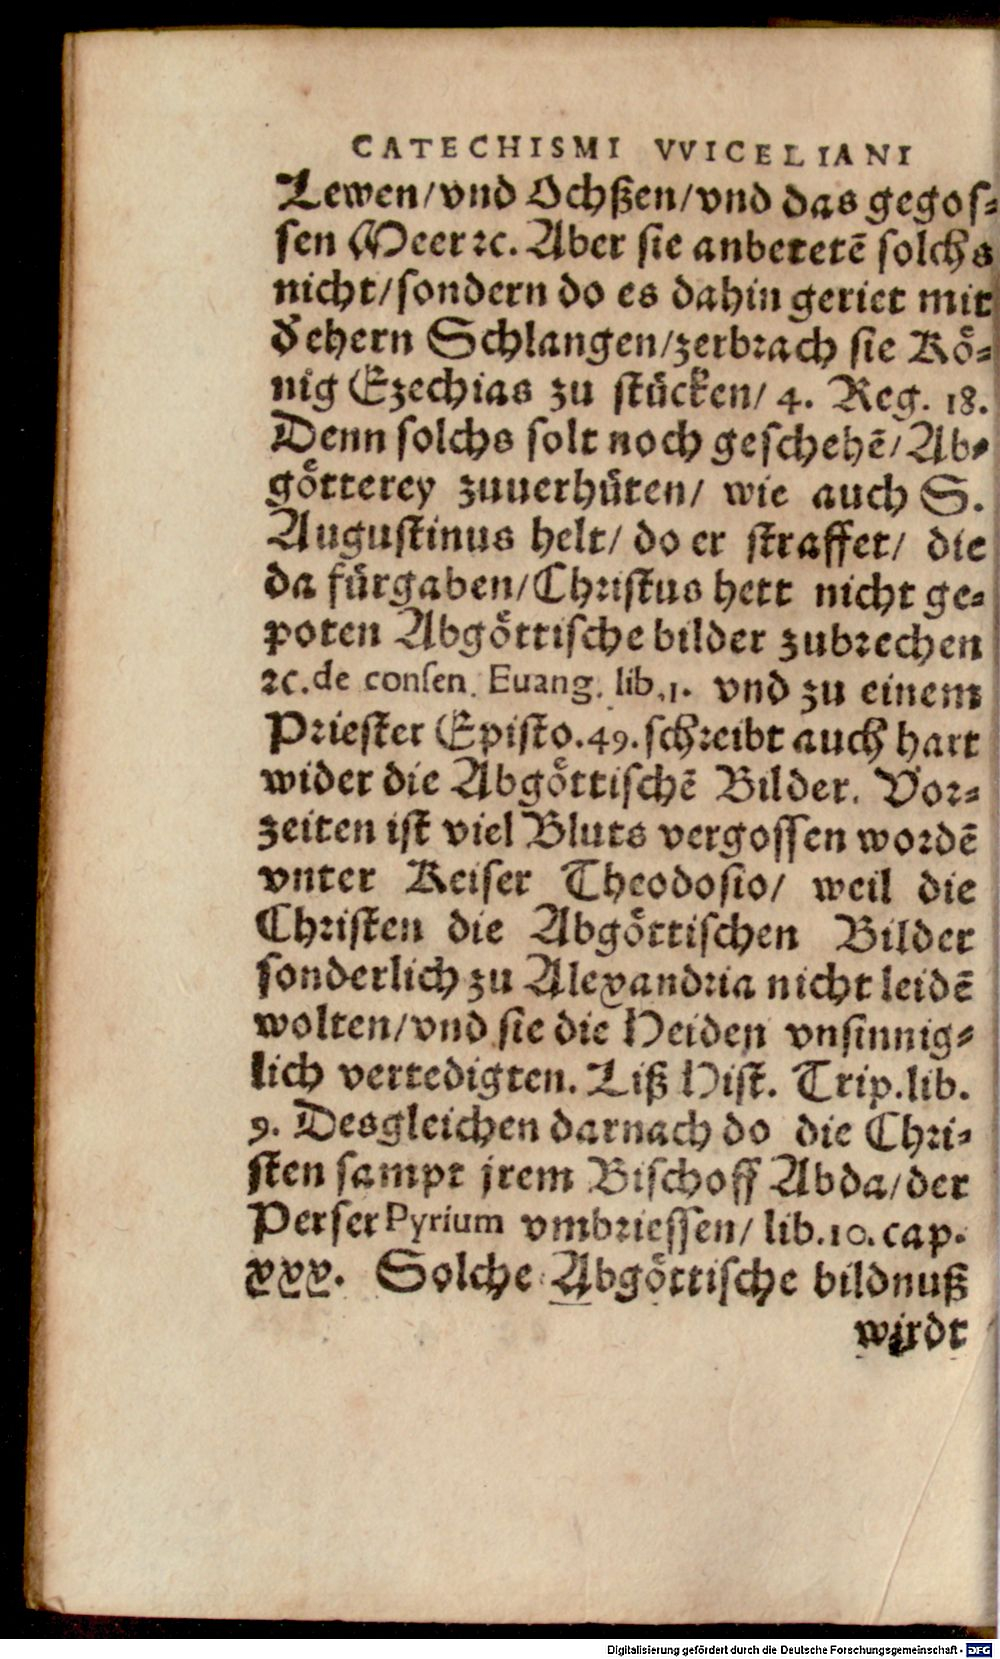 CATECHISMI VVICELIANI
Lewen/vnd Ochßen/vnd das gegos⸗
sen Meer ꝛc. Aber sie anbetetē solchs
nicht/sondern do es dahin geriet mit
d̕ ehern Schlangen/zerbrach sie Koͤ⸗
nig Ezechias zu stuͤcken/ 4. Reg. 18.
Denn solchs solt noch geschehē/Ab⸗
goͤtterey zuuerhuͤten/ wie auch S.
Augustinus helt/ do er straffet/ die
da fuͤrgaben/Christus hett nicht ge⸗
poten Abgoͤttische bilder zubrechen
ꝛc. de consen. Euang. lib. 1. vnd zu einem
Priester Episto. 49. schreibt auch hart
wider die Abgoͤttischē Bilder. Vor⸗
zeiten ist viel Bluts vergossen wordē
vnter Keiser Theodosio/ weil die
Christen die Abgoͤttischen Bilder
sonderlich zu Alexandria nicht leidē
wolten/vnd sie die Heiden vnsinnig⸗
lich vertedigten. Liß Hist. Trip. lib.
9. Desgleichen darnach do die Chri⸗
sten sampt jrem Bischoff Abda/der
Perser Pyrium vmbriessen/ lib. 10. cap.
xxx. Solche Abgoͤttische bildnuß
wirdt
Digitalisierung gefördert durch die Deutsche Forschungsgemeinschaft - DFG